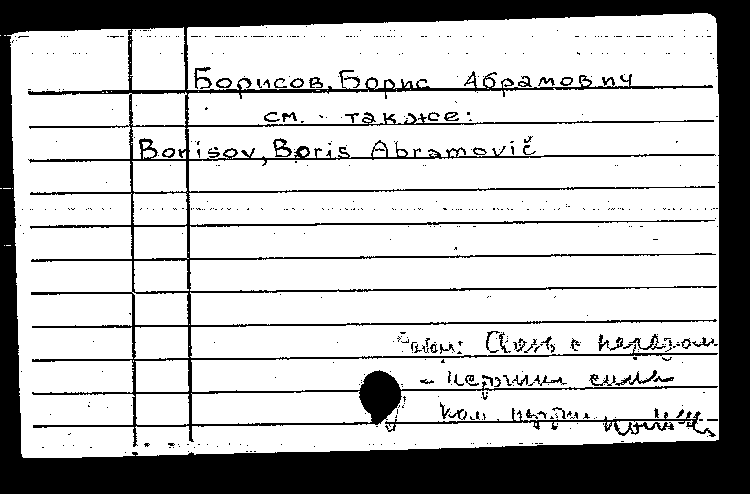 Борисов, Борис Абрамович
см. также:
Borisov, Boris Abramovič
Связь с народом
- источник силы
Ком. партии